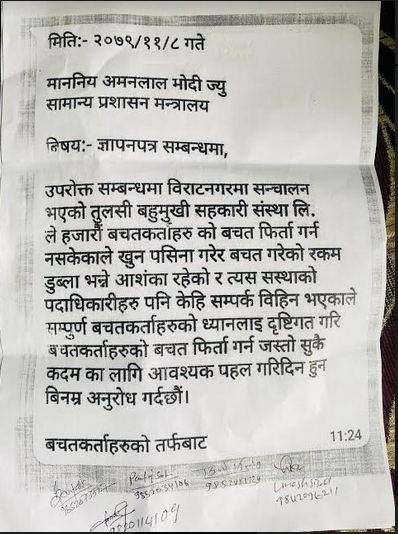 मिति:- २०७९/११/८ गते
माननिय अमनलाल मोदी ज्यु
सामान्य प्रशासन मन्त्रालय
विषय:- ज्ञापनपत्र सम्बन्धमा,
उपरोक्त सम्बन्धमा विराटनगरमा सन्चालन
भएको तुलसी बहुमुखी सहकारी संस्था लि.
ले हजारौं बचतकर्ताहरु को बचत फिर्ता गर्न
नसकेकाले खुन पसिना गरेर बचत गरेको रकम
डुब्ला भन्ने आशंका रहेको र त्यस सस्थाको
पदाधिकारीहरु पनि केहि सम्पर्क विहिन भएकाले
सम्पुर्ण बचतकर्ताहरुको ध्यानलाइ दृष्टिगत गरि
बचतकर्ताहरुको बचत फिर्ता गर्न जस्तो सुकै
कदम का लागि आवश्यक पहल गरिदिन हुन
बिनम्र अनुरोध गर्दछौं।
बचतकर्ताहरुको तर्फबाट
11:24